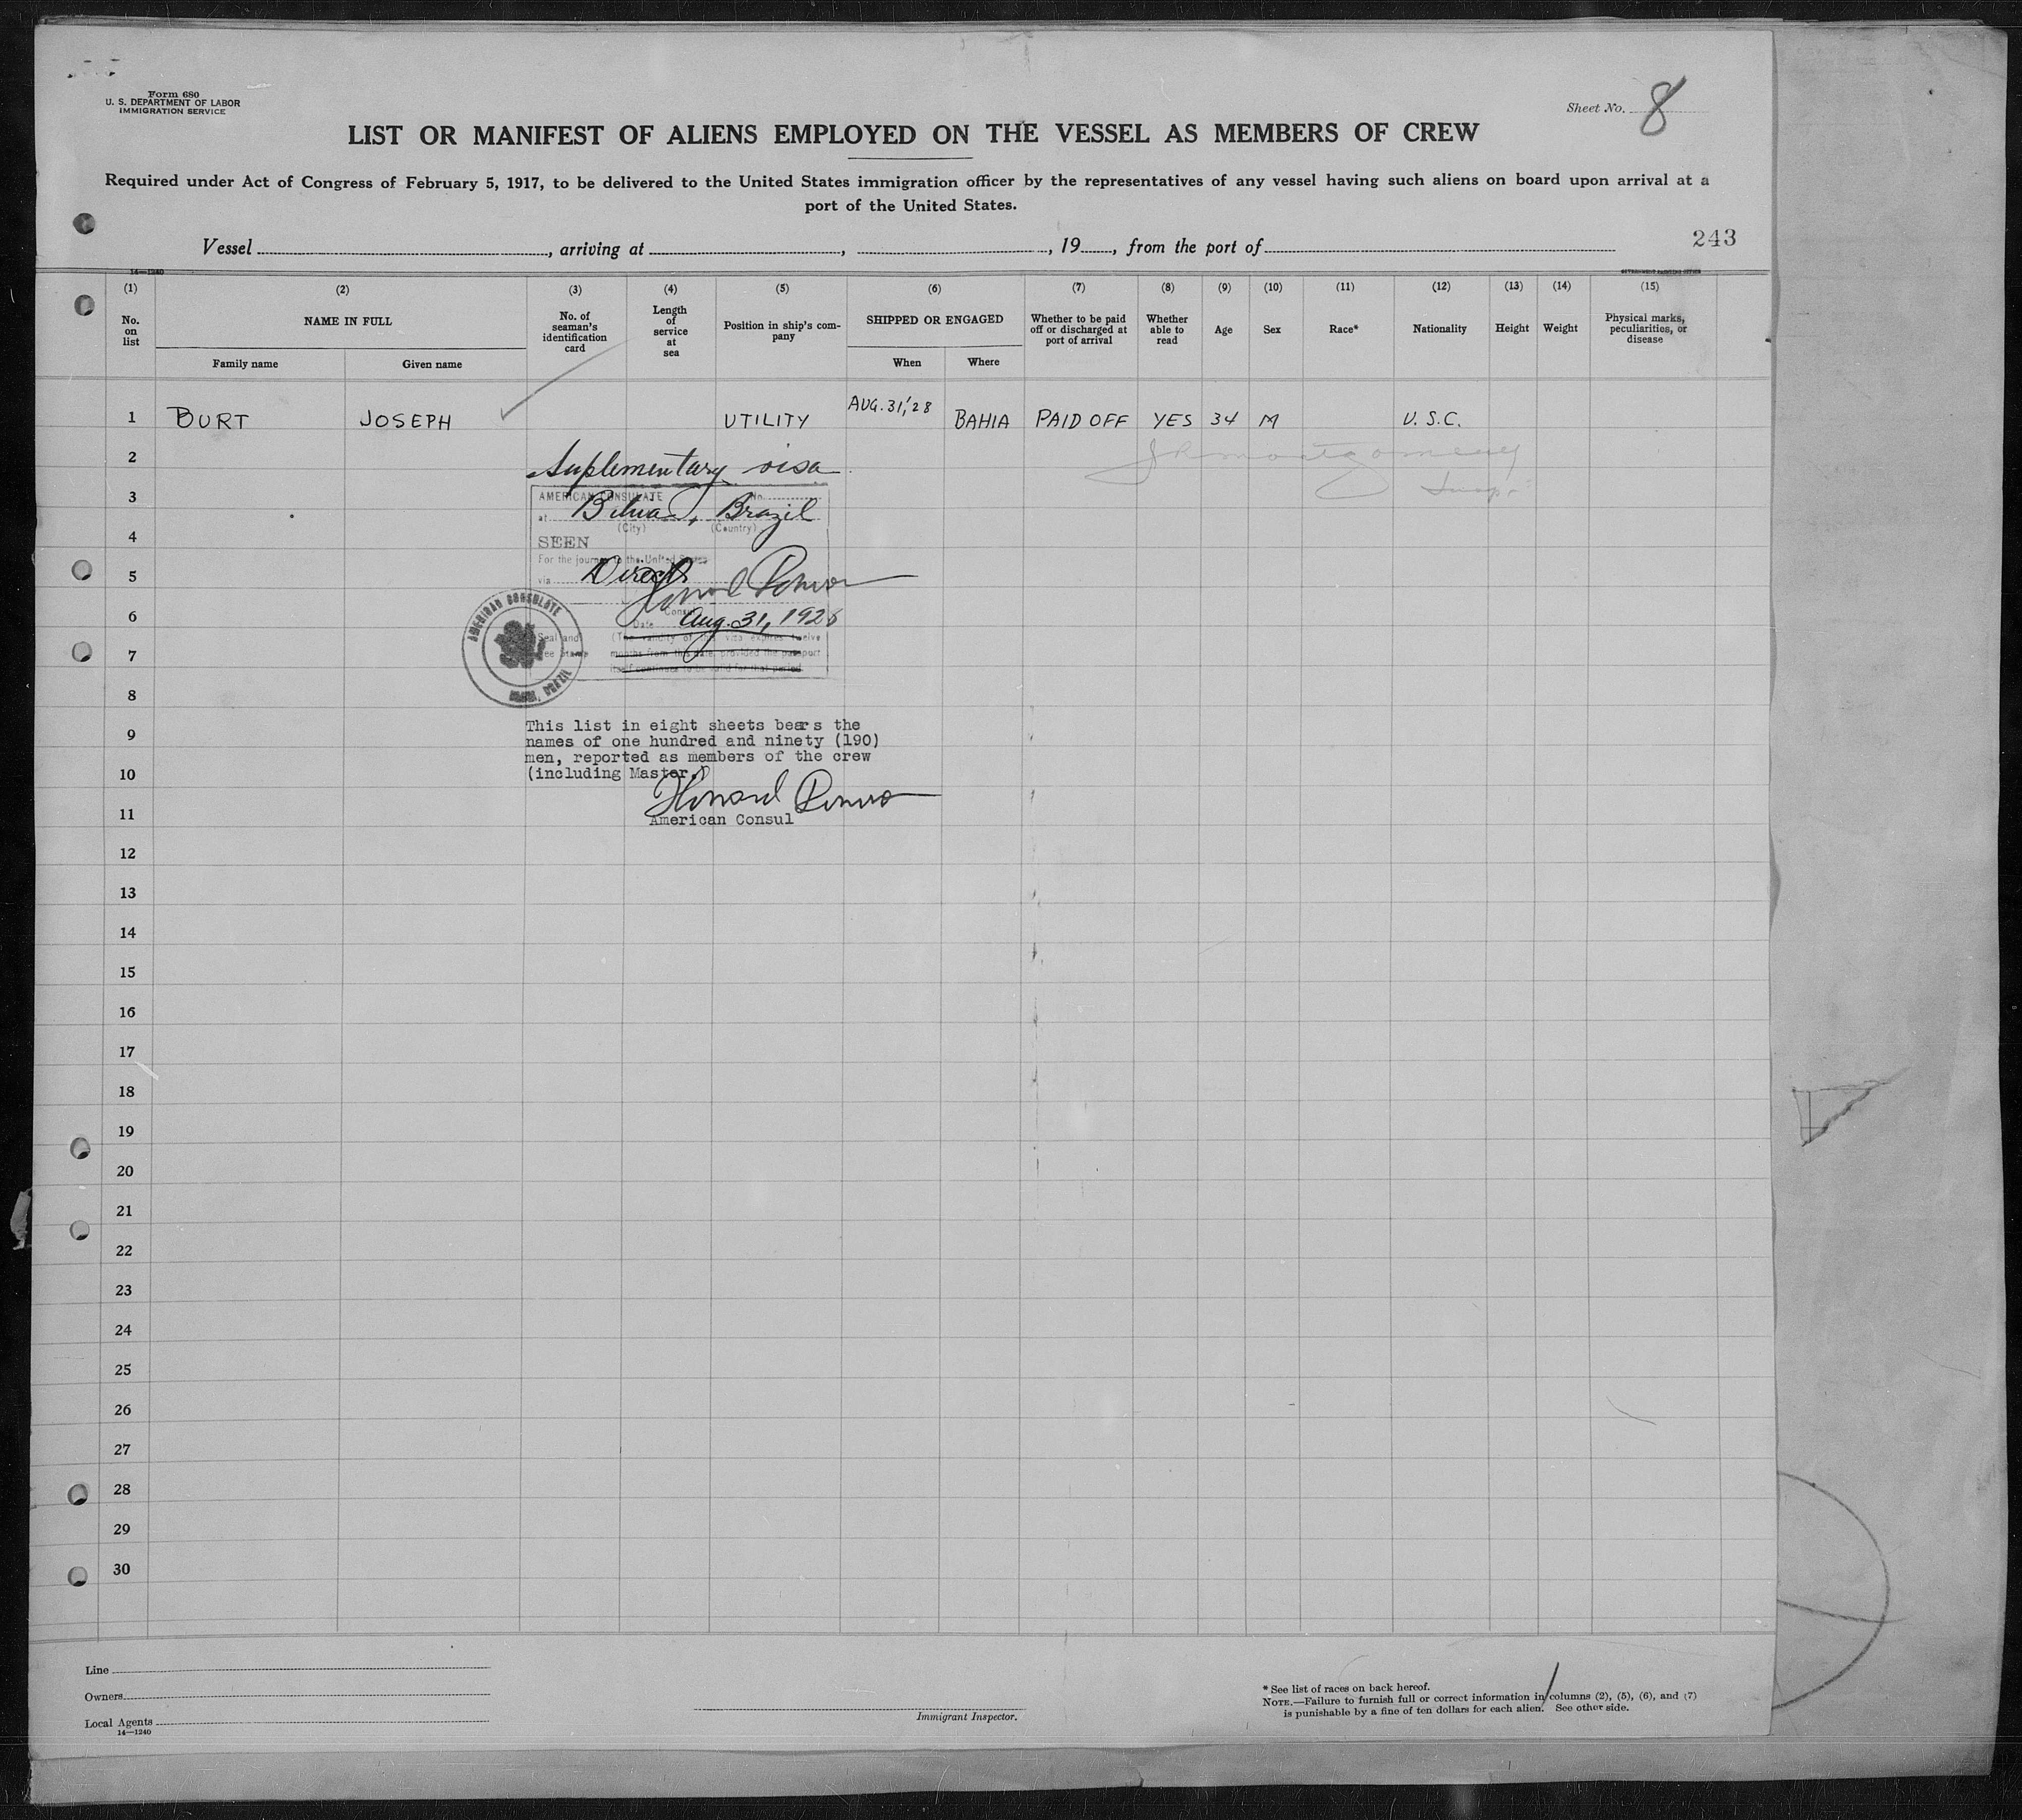 Form 680
U. S. DEPARTMENT OF LABOR
IMMIGRATION SERVICE
Sheet No. 8
LIST OR MANIFEST OF ALIENS EMPLOYED ON THE VESSEL AS MEMBERS OF CREW
Required under Act of Congress of February 5, 1917, to be delivered to the United States immigration officer by the representatives of any vessel having such aliens on board upon arrival at a
port of the United States.
Vessel , arriving at , , 19 , from the port of
243
14—1240
GOVERNMENT PRINTING OFFICE
(1) (2) (3) (4) (5) (6) (7) (8) (9) (10) (11) (12) (13) (14) (15)
No. on list
NAME IN FULL
Family name
Given name
No. of seaman's identification card
Length of service at sea
Position in ship's company
SHIPPED OR ENGAGED
When
Where
Whether to be paid off or discharged at port of arrival
Whether able to read
Age
Sex
Race*
Nationality
Height
Weight
Physical marks, peculiarities, or disease
1 BURT JOSEPH UTILITY AUG. 31, '28 BAHIA PAID OFF YES 34 M U.S.C.
2
Suplementary visa
JRMontgomery
3
AMERICAN CONSULATE No.
at Brazil
(City) (Country)
4
SEEN
For the journey to the United States
5
via Direct
Consul
6
Date Aug. 31, 1928
AMERICAN CONSULATE
BRAZIL
Seal and
Fee Stamp
(The validity of this visa expires twelve
7
months from this date, provided the passport
itself continues to be valid for that period.
8
This list in eight sheets bears the
9
names of one hundred and ninety (190)
men, reported as members of the crew
10
(including Master)
11
American Consul
12
13
14
15
16
17
18
19
20
21
22
23
24
25
26
27
28
29
30
Line
Owners
Local Agents
14—1240
Immigrant Inspector.
* See list of races on back hereof.
NOTE.—Failure to furnish full or correct information in columns (2), (5), (6), and (7)
is punishable by a fine of ten dollars for each alien. See other side.